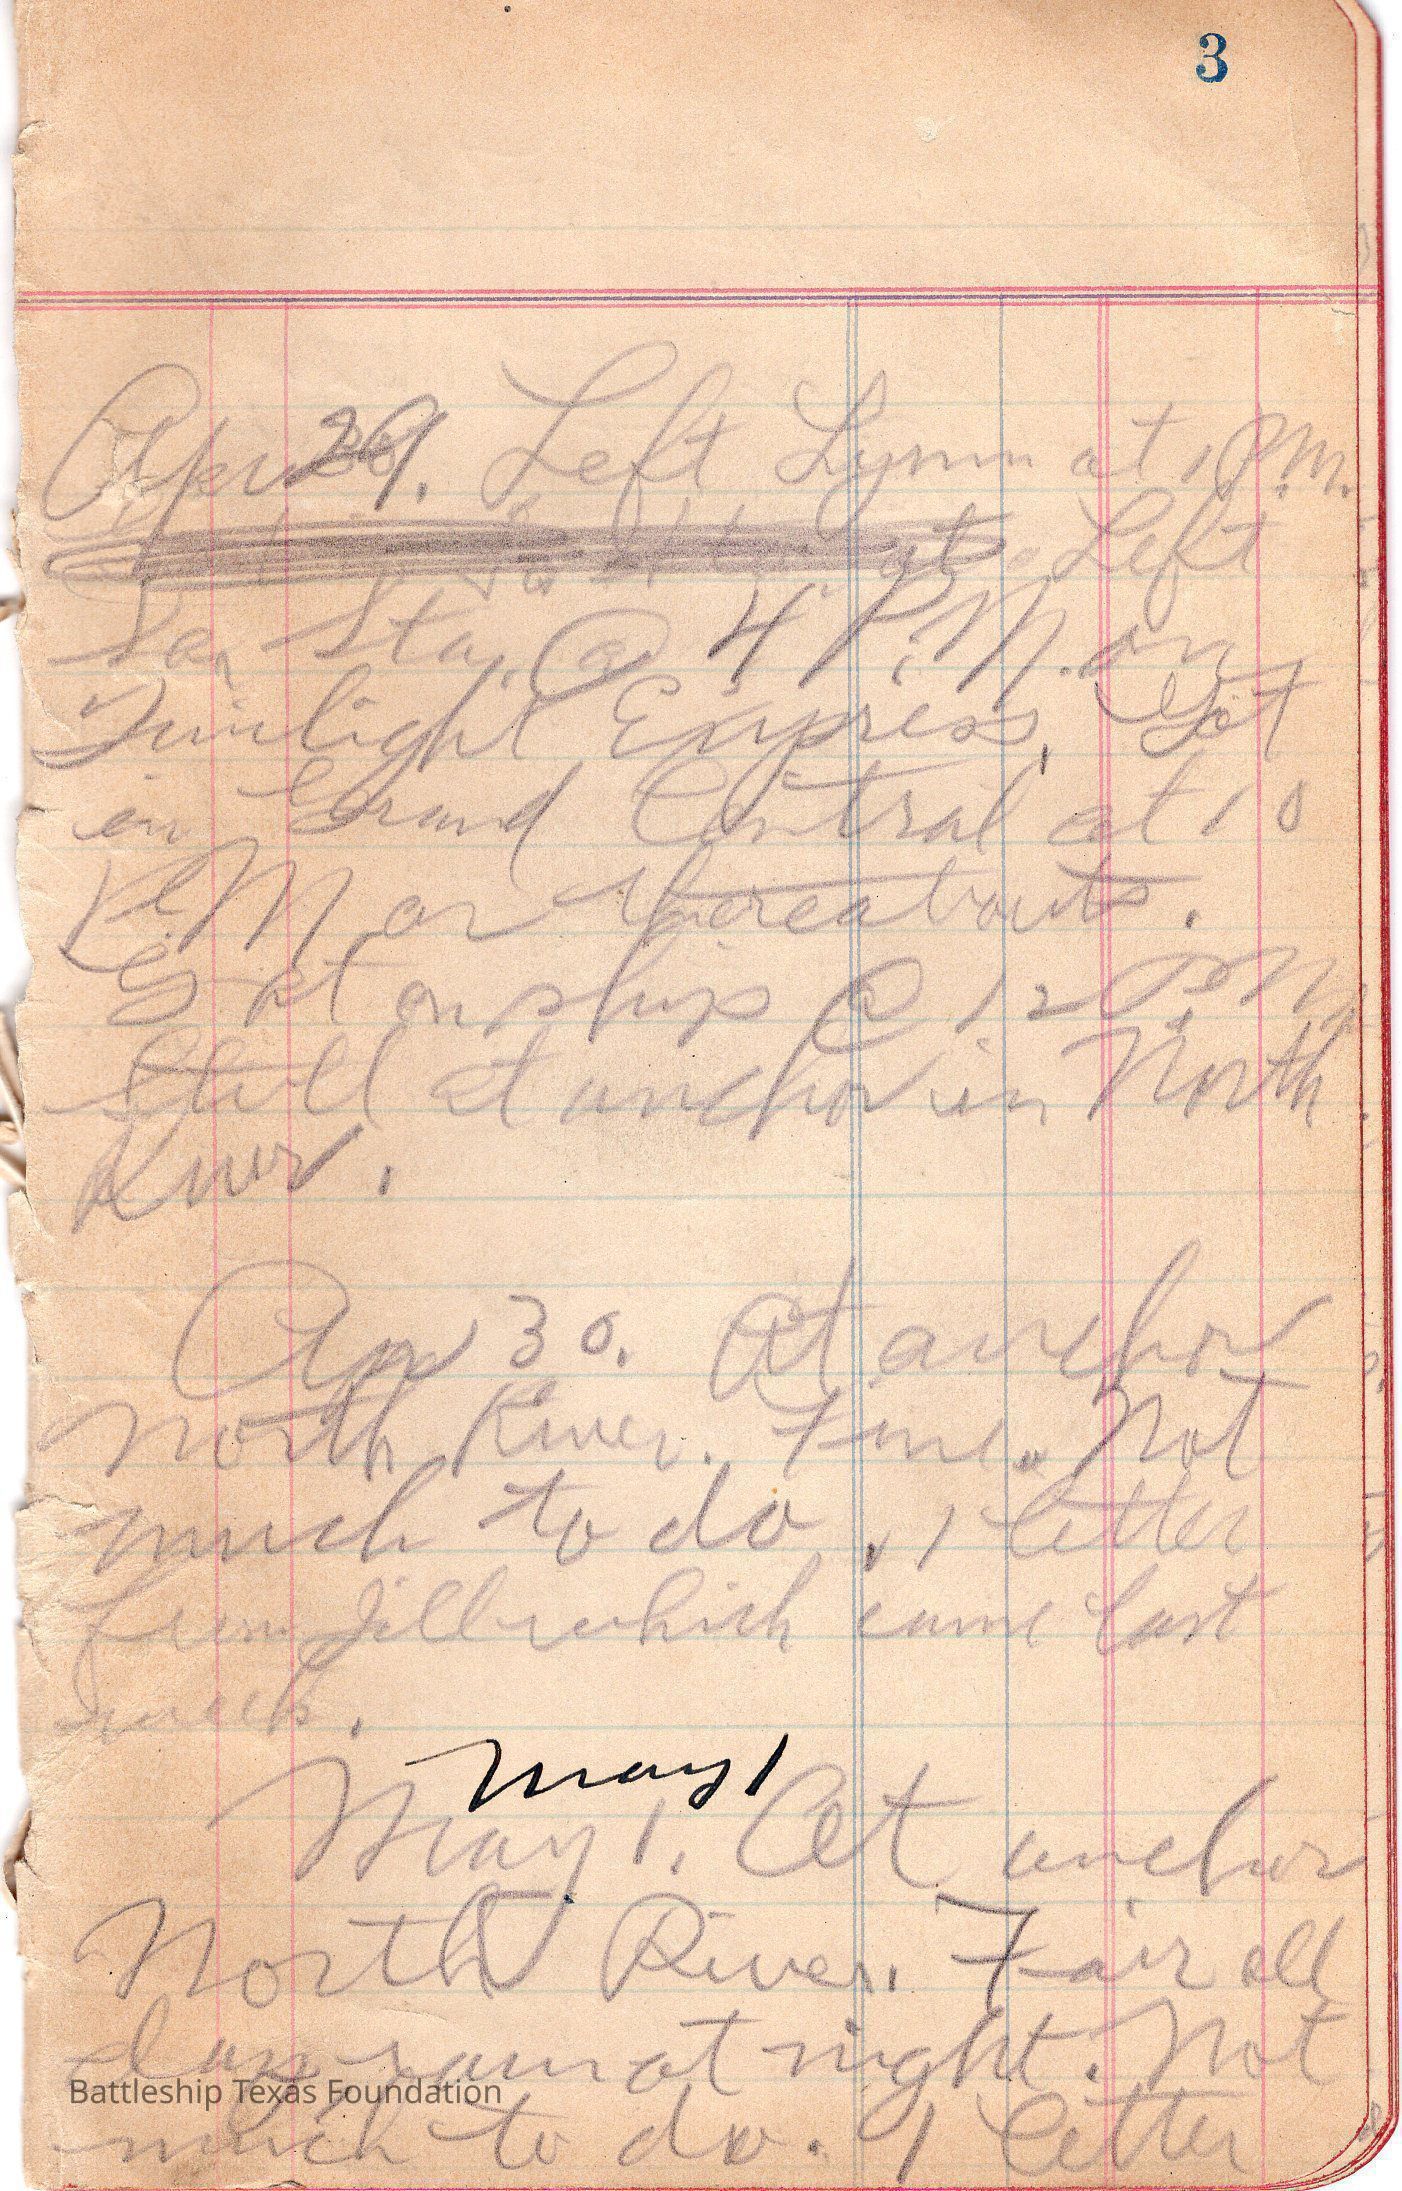 3
Apr 29. Left Lynn at 1 P.M.
at Left
So. Sta. @ 4 P.M. on
Twilight Express. Got
in Grand Central at 10
P.M or thereabouts.
Got on ship @ 12 PM
Still at anchor in North
River.
Apr 30. At anchor
North River. Fine. Not
much to do. 1 letter
from Jill which came last
week.
May 1
May 1. At anchor
North River. Fair all
day rain at night. Not
much to do. 1 letter
Battleship Texas Foundation